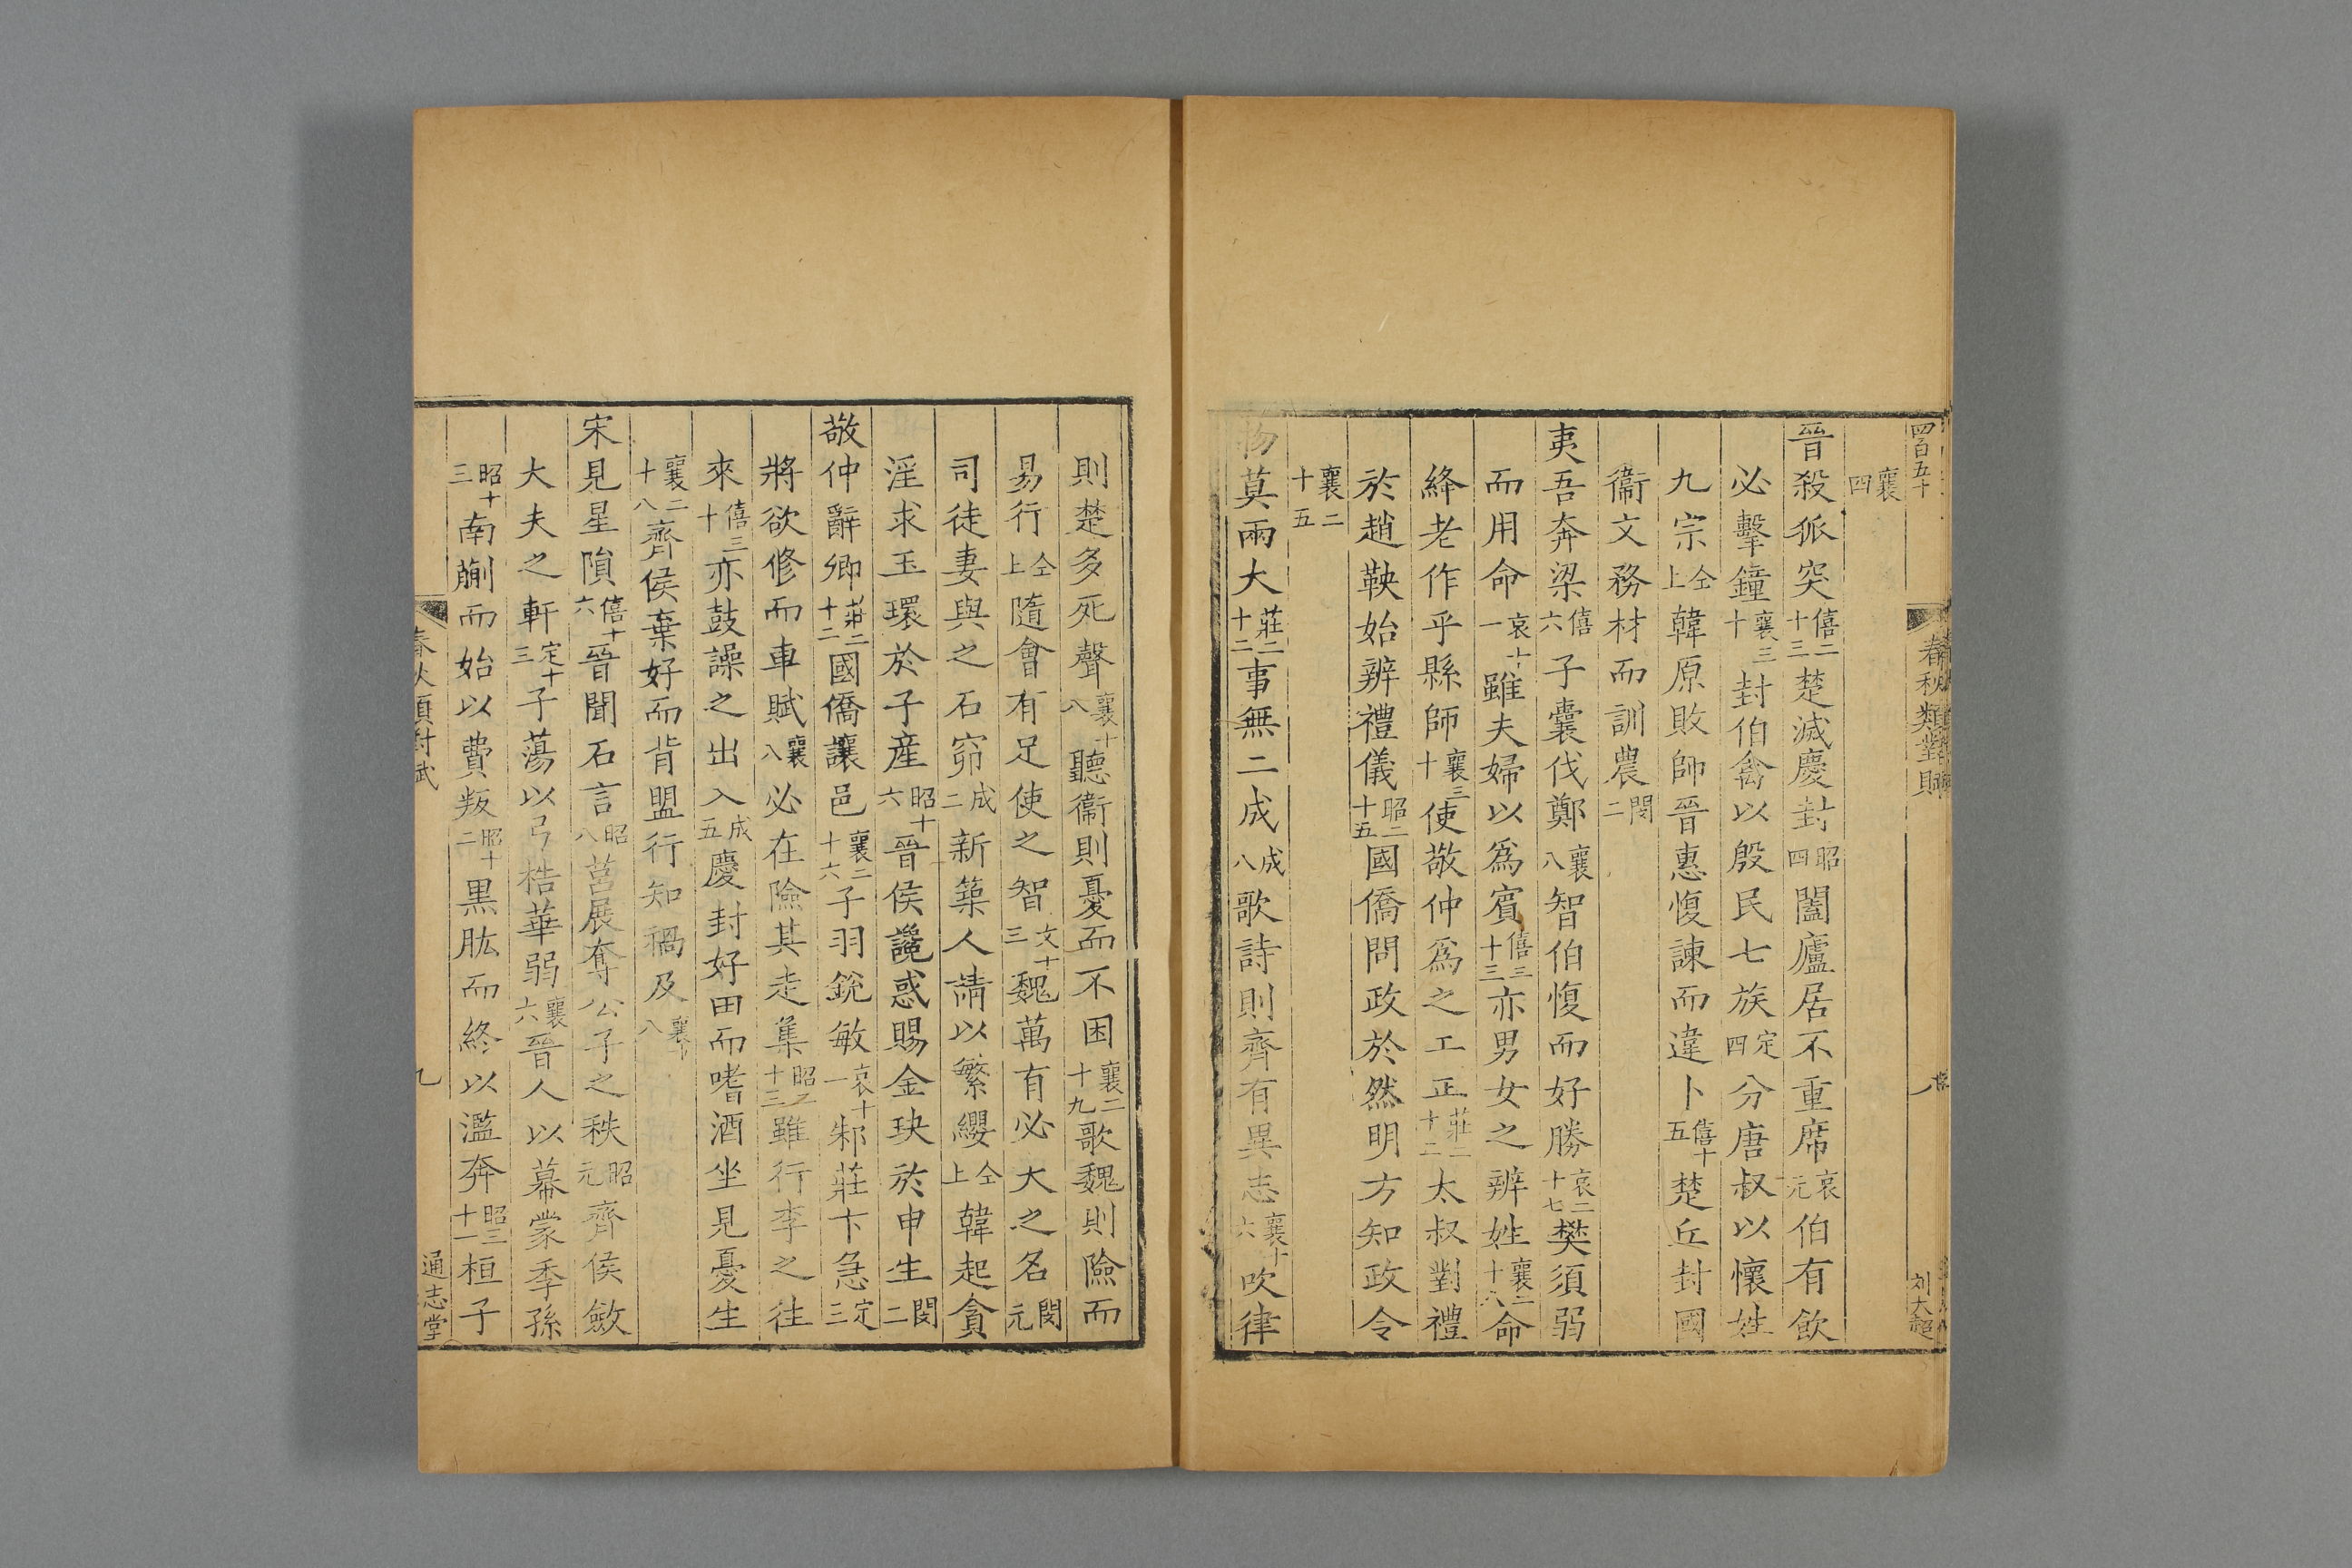 四百五十
春秋類對賦
刘大超
襄四
晉殺狐突僖二十三楚滅慶封昭四闔廬居不重席哀元伯有飲
必擊鐘襄三十封伯禽以殷民七族定四分唐叔以懷姓
九宗仝上韓原敗師晉惠愎諫而違卜僖十五楚丘封國
衞文務材而訓農閔二
夷吾奔梁僖六子囊伐鄭襄八智伯愎而好勝哀二十七樊須弱
而用命哀十一雖夫婦以爲賓僖三十三亦男女之辨姓襄二十八命
絳老作乎縣師襄三十使敬仲爲之工正莊二十二太叔對禮
於趙鞅始辨禮儀昭二十五國僑問政於然明方知政令
襄二十五
物莫兩大莊二十二事無二成成八歌詩則齊有異志襄十六吹律
則楚多死聲襄十八聽衞則憂而不困襄二十九歌魏則險而
易行仝上隨會有足使之智文十三魏萬有必大之名閔元
司徒妻與之石窌成二新築人請以繁纓仝上韓起貪
淫求玉環於子產昭十六晉侯讒惑賜金玦於申生閔二
敬仲辭卿莊二十二國僑讓邑襄二十六子羽銳敏哀十一邾莊卞急定三
將欲修而車賦襄八必在險其走集昭二十三雖行李之往
來僖三十亦鼓譟之出入成五慶封好田而嗜酒坐見憂生
襄二十八齊侯棄好而背盟行知禍及襄十八
宋見星隕僖十六晉聞石言昭八莒展奪公子之秩昭元齊侯斂
大夫之軒定十三子蕩以弓梏華弱襄六晉人以幕蒙季孫
昭十三南蒯而始以費叛昭十二黑肱而終以濫奔昭三十一桓子
春秋類對賦
九
通志堂